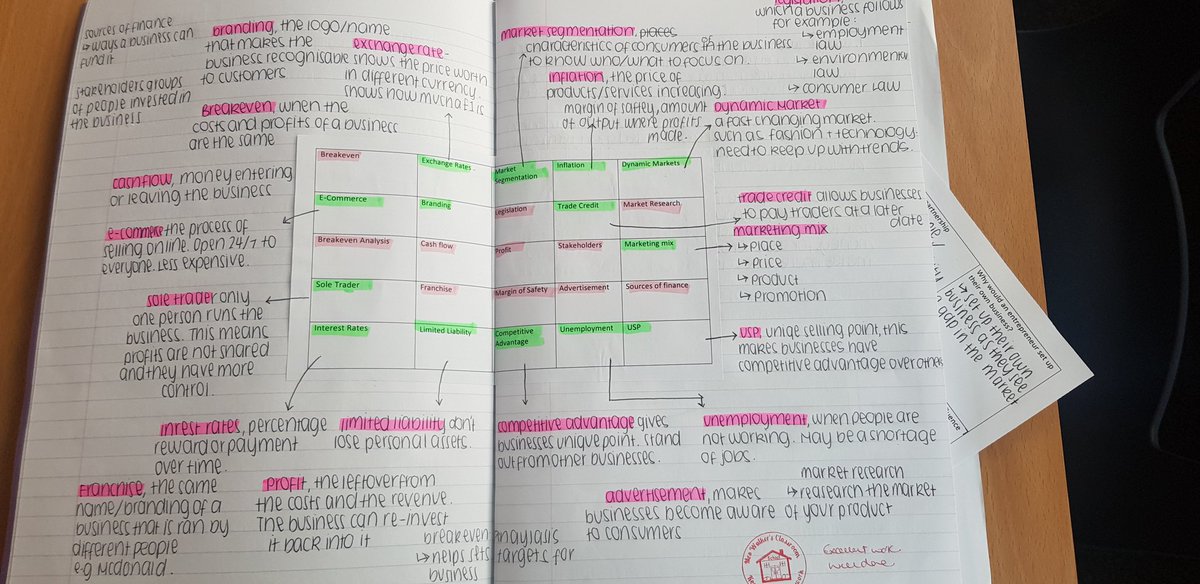 sources of finance
↳ ways a business can
fund it
stakeholders groups
of people invested in
the business
branding, the logo/name
that makes the
business recognisable
to customers
exchange rate -
shows the price worth
in different currency.
shows how much a £ is
Breakeven, when the
costs and profits of a business
are the same
cashflow, money entering
or leaving the business
e-commerce the process of
selling online. Open 24/7 to
everyone. Less expensive.
sole trader only
one person runs the
business. This means
profits are not shared
and they have more
control.
market segmentation, places
characteristics of consumers of in the business
to know who/what to focus on.
which a business follows
for example:
↳ employment
law
↳ environmental
law
↳ consumer law
inflation, the price of
products/services increasing.
margin of saftey, amount
of output where profits
made.
Dynamic market
a fast changing market.
such as fashion + technology
need to keep up with trends.
Breakeven
Exchange Rates.
Market
Segmentation
Inflation
Dynamic Markets
E-Commerce
Branding
Legislation
Trade Credit
Market Research
Breakeven Analysis
Cash flow
Profit
Stakeholders
Marketing mix
Sole Trader
Franchise
Margin of Safety
Advertisement
Sources of finance
Interest Rates
Limited Liability
Competitive
Advantage
Unemployment
USP
trade credit allows businesses
to pay traders at a later
date
marketing mix
↳ place
↳ price
↳ product
↳ promotion
USP, uniqe selling point, this
makes businesses have
competitive advantage over
inrest rates, percentage
reward or payment
over time.
limited liability don't
lose personal assets.
competitive advantage gives
businesses unique point. stand
out from other businesses.
unemployment, when people are
not working. May be a shortage
of jobs.
Franchise, the same
name/branding of a
business that is ran by
different people
e.g Mcdonald.
profit, the leftover from
the costs and the revenue.
The business can re-invest
it back into it
breakeven anaylasis
↳ helps sets targets for
business
advertisement, makes
businesses become aware
to consumers
market research
↳ reasearch the market
of your product
Mrs Walker's Classroom
Excellent work
well done
Why would an entrepreneur set up
their own business?
↳ set up their own
business as they see
gap in the market